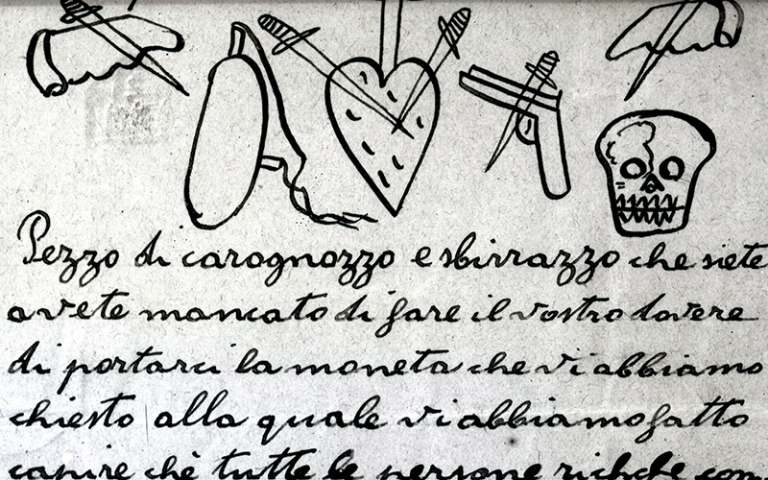 Pezzo di carognozzo e sbirrazzo che siete
avete mancato di fare il vostro dovere
di portarci la moneta che vi abbiamo
chiesto alla quale vi abbiamo fatto
capire chè tutte le persone richche com